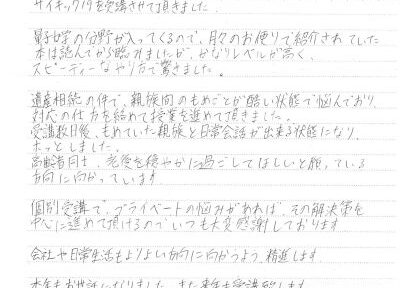 サイキック19を受講させて頂きました。
量子力学の分野が入ってくるので、月々のお便りで紹介されていた
本は読んでから臨みましたが、かなりレベルが高く、
スピーディーなやり方で驚きました。
遺産相続の件で、親族間のもめごとが酷い状態で悩んでおり、
対応の仕方を絡めて授業を進めて頂きました。
受講数日後、もめていた親族と日常会話が出来る状態になり、
ホッとしました。
高齢者同士、老後を穏やかに過ごしてほしいと願っている
方向に向かっています
個別受講で、プライベートの悩みがあれば、その解決策を
中心に進めて頂けるのでいつも大変感謝しております
会社や日常生活もよりよい方向に向かうよう、精進します
本年もお世話になりました。また来年も受講致します